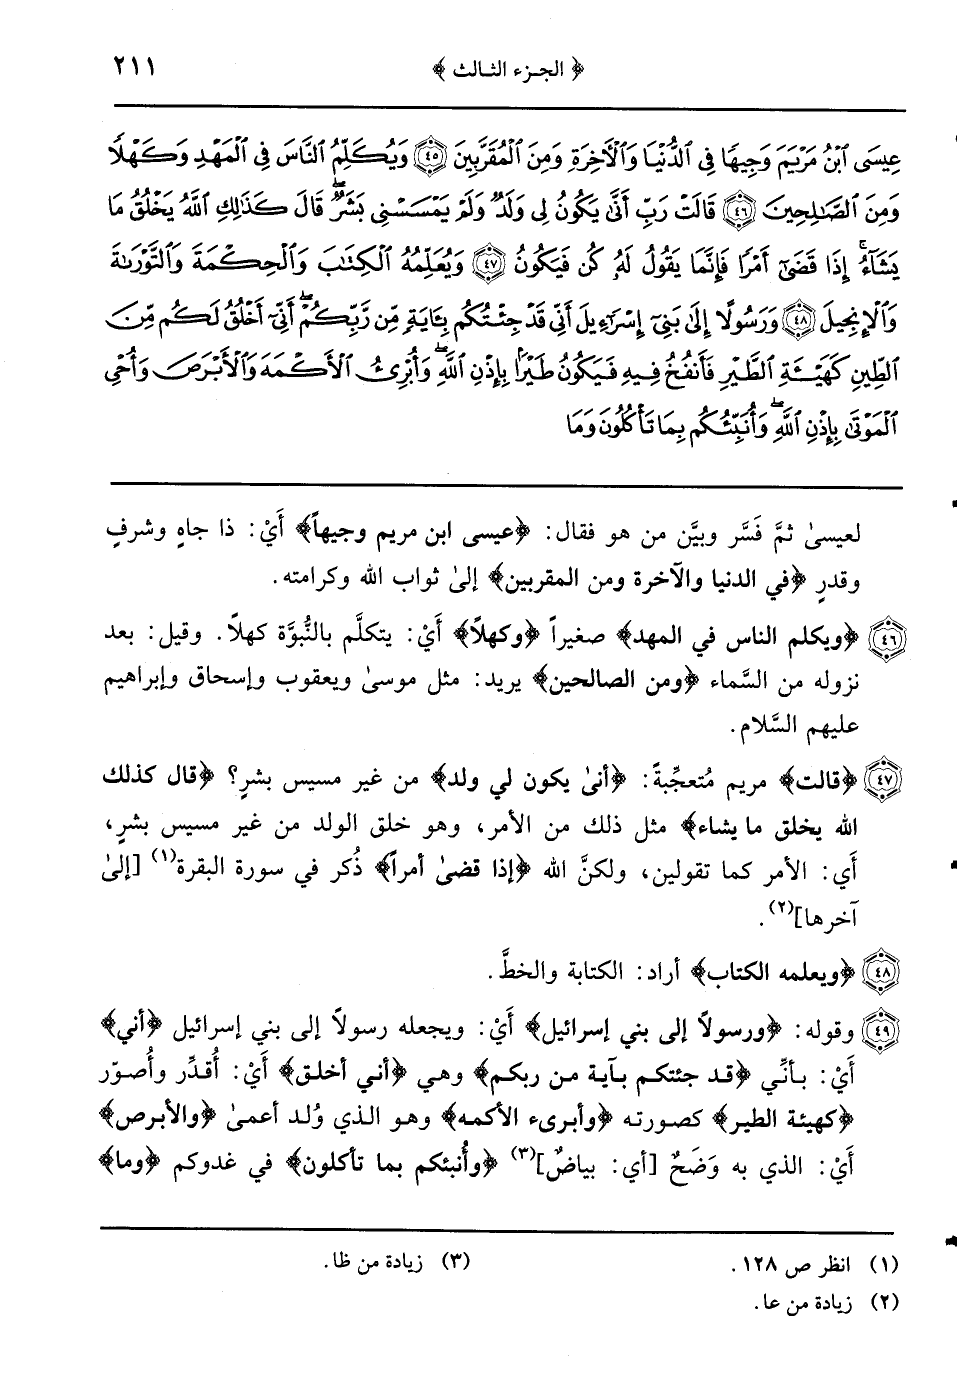 ﴿ الجزء الثالث ﴾ ٢١١
عِيسَى ٱبْنُ مَرْيَمَ وَجِيهًا فِي ٱلدُّنْيَا وَٱلْأٓخِرَةِ وَمِنَ ٱلْمُقَرَّبِينَ ﴿٤٥﴾ وَيُكَلِّمُ ٱلنَّاسَ فِي ٱلْمَهْدِ وَكَهْلًا
وَمِنَ ٱلصَّٰلِحِينَ ﴿٤٦﴾ قَالَتْ رَبِّ أَنَّىٰ يَكُونُ لِي وَلَدٌ وَلَمْ يَمْسَسْنِي بَشَرٌ ۖ قَالَ كَذَٰلِكِ ٱللَّهُ يَخْلُقُ مَا
يَشَآءُ ۚ إِذَا قَضَىٰٓ أَمْرًا فَإِنَّمَا يَقُولُ لَهُۥ كُن فَيَكُونُ ﴿٤٧﴾ وَيُعَلِّمُهُ ٱلْكِتَٰبَ وَٱلْحِكْمَةَ وَٱلتَّوْرَىٰةَ
وَٱلْإِنجِيلَ ﴿٤٨﴾ وَرَسُولًا إِلَىٰ بَنِيٓ إِسْرَٰٓءِيلَ أَنِّي قَدْ جِئْتُكُم بِـَٔايَةٍ مِّن رَّبِّكُمْ ۖ أَنِّيٓ أَخْلُقُ لَكُم مِّنَ
ٱلطِّينِ كَهَيْـَٔةِ ٱلطَّيْرِ فَأَنفُخُ فِيهِ فَيَكُونُ طَيْرًۢا بِإِذْنِ ٱللَّهِ ۖ وَأُبْرِئُ ٱلْأَكْمَهَ وَٱلْأَبْرَصَ وَأُحْيِ
ٱلْمَوْتَىٰ بِإِذْنِ ٱللَّهِ ۖ وَأُنَبِّئُكُم بِمَا تَأْكُلُونَ وَمَا
لعيسىٰ ثمَّ فَسَّر وبيَّن من هو فقال: ﴿عيسى ابن مريم وجيهاً﴾ أَيْ: ذا جاهٍ وشرفٍ
وقدرٍ ﴿في الدنيا والآخرة ومن المقربين﴾ إلىٰ ثواب الله وكرامته.
﴿٤٦﴾ ﴿ويكلم الناس في المهد﴾ صغيراً ﴿وكهلاً﴾ أَيْ: يتكلَّم بالنُّبوَّة كهلاً. وقيل: بعد
نزوله من السَّماء ﴿ومن الصالحين﴾ يريد: مثل موسىٰ ويعقوب وإسحاق وإبراهيم
عليهم السَّلام.
﴿٤٧﴾ ﴿قالت﴾ مريم مُتعجِّبةً: ﴿أنىٰ يكون لي ولد﴾ من غير مسيس بشرٍ؟ ﴿قال كذلك
الله يخلق ما يشاء﴾ مثل ذلك من الأمر، وهو خلق الولد من غير مسيس بشرٍ،
أَي: الأمر كما تقولين، ولكنَّ الله ﴿إذا قضىٰ أمراً﴾ ذُكر في سورة البقرة(١) [إلىٰ
آخرها](٢).
﴿٤٨﴾ ﴿ويعلمه الكتاب﴾ أراد: الكتابة والخطَّ.
﴿٤٩﴾ وقوله: ﴿ورسولاً إلى بني إسرائيل﴾ أَيْ: ويجعله رسولاً إلى بني إسرائيل ﴿أني﴾
أَيْ: بأنِّي ﴿قد جئتكم بآية من ربكم﴾ وهي ﴿أني أخلق﴾ أَيْ: أُقدِّر وأُصوّر
﴿كهيئة الطير﴾ كصورته ﴿وأبرىء الأكمه﴾ وهو الذي وُلد أعمىٰ ﴿والأبرص﴾
أَيْ: الذي به وَضَحٌ [أي: بياضٌ](٣) ﴿وأُنبئكم بما تأكلون﴾ في غدوكم ﴿وما﴾
(١) انظر ص ١٢٨. (٣) زيادة من ظا.
(٢) زيادة من عا.